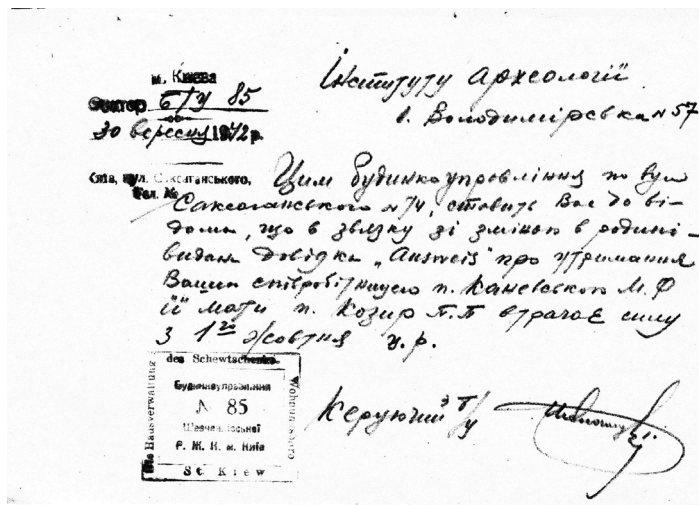 м. Києва
Сектор Б/У 85
30 вересня 1942 р.
Київ, вул. Саксаганського,
Тел. №
Інституту Археології
в. Володимірська № 57
Цим будинкоуправління по вул
Саксаганського № 74, ставить Вас до ві-
дома, що в звязку зі зміною в родині -
видана довідка „Ausweis" про утримання
Вашою співробітницею п. Каневською М.Ф
її мати п. Козир П.П втрачає силу
з 1го жовтня ц.р.
des Schewtschenko-
Die Hausverwaltung
Wohnungsbüro
Будинкоуправління
№ 85
Шевченківської
Р. Ж. К. м. Київ
St. Kiew
Керуючий Б/У